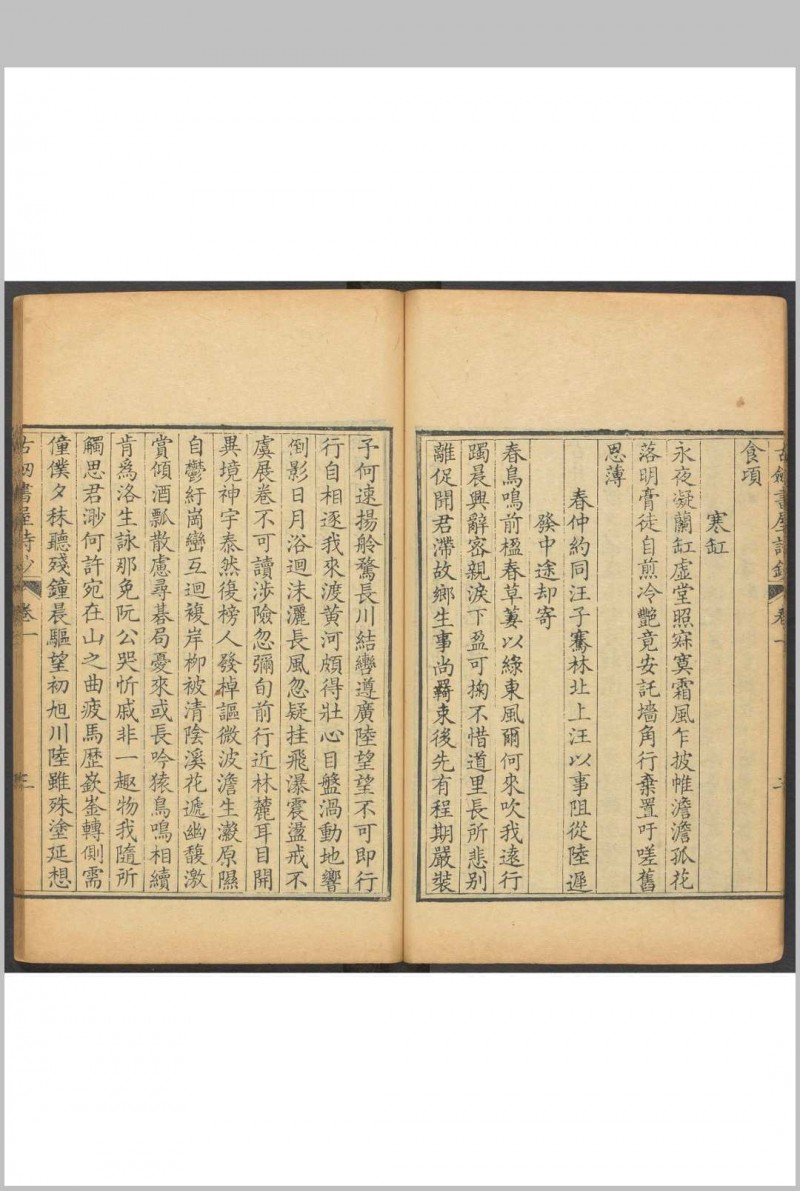 書屋詩鈔 卷一 二
食項
寒缸
永夜凝蘭缸虛堂照寂寞霜風乍披帷澹澹孤花
落明膏徒自煎冷艷竟安託墻角行棄置吁嗟舊
恩薄
春仲約同汪子騫林北上汪以事阻從陸遲
發中途却寄
春鳥鳴前楹春草萋以綠東風爾何來吹我遠行
躅晨興辭密親淚下盈可掬不惜道里長所悲別
離促聞君滯故鄉生事尚羇束後先有程期嚴裝
子何速揚舲騖長川結轡遵廣陸望望不可即行
行自相逐我來渡黃河頗得壯心目盤渦動地響
倒影日月浴迴沫灑長風忽疑挂飛瀑震盪戒不
虞展卷不可讀涉險忽彌旬前行近林麓耳目開
異境神宇泰然復榜人發棹謳微波澹生瀫原隰
自鬱紆崗巒互迴複岸柳被清陰溪花遞幽馥激
賞傾酒瓢散慮尋碁局憂來或長吟猿鳥鳴相續
肯為洛生詠那免阮公哭忻戚非一趣物我隨所
觸思君渺何許宛在山之曲疲馬歷嶔崟轉側需
僮僕夕秣聽殘鐘晨驅望初旭川陸雖殊塗延想
書屋詩鈔 卷一 三